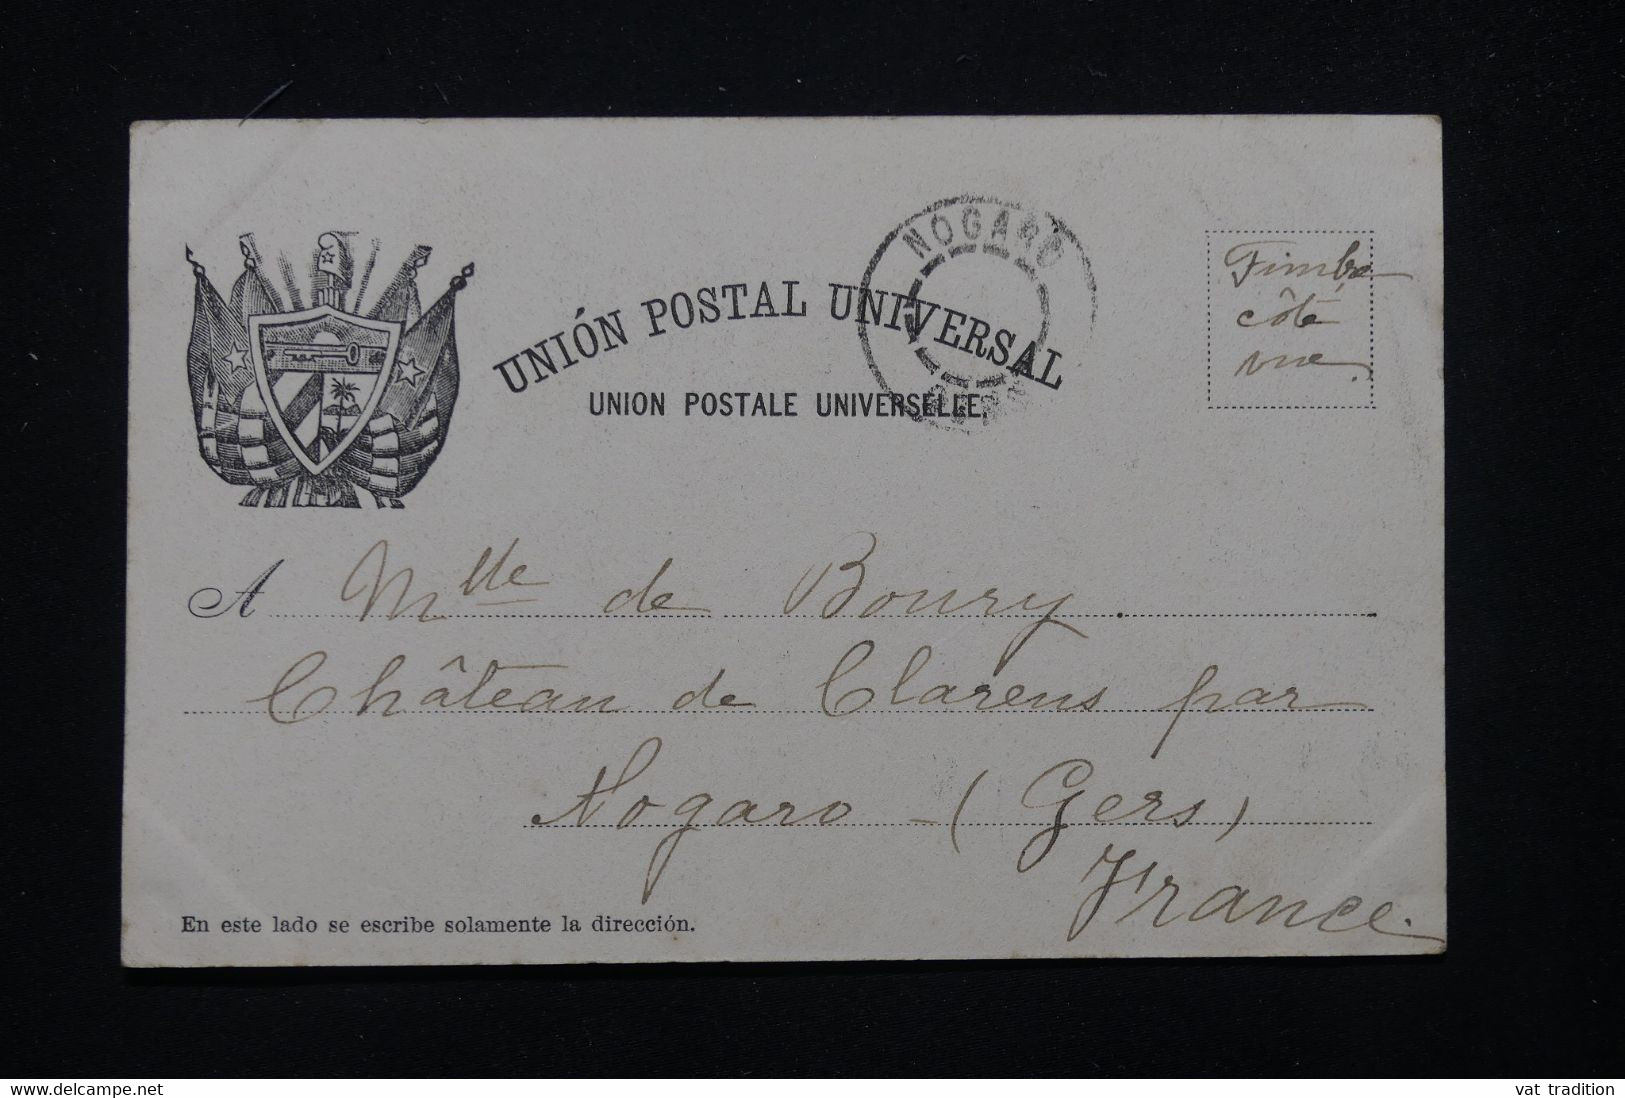 NOGARO
GERS
UNIÓN POSTAL UNIVERSAL
UNION POSTALE UNIVERSELLE.
Timbre
côté
vue.
A Mlle de Boury.
Château de Clarens par
Nogaro - (Gers)
France.
En este lado se escribe solamente la dirección.
www.delcampe.net
vat tradition